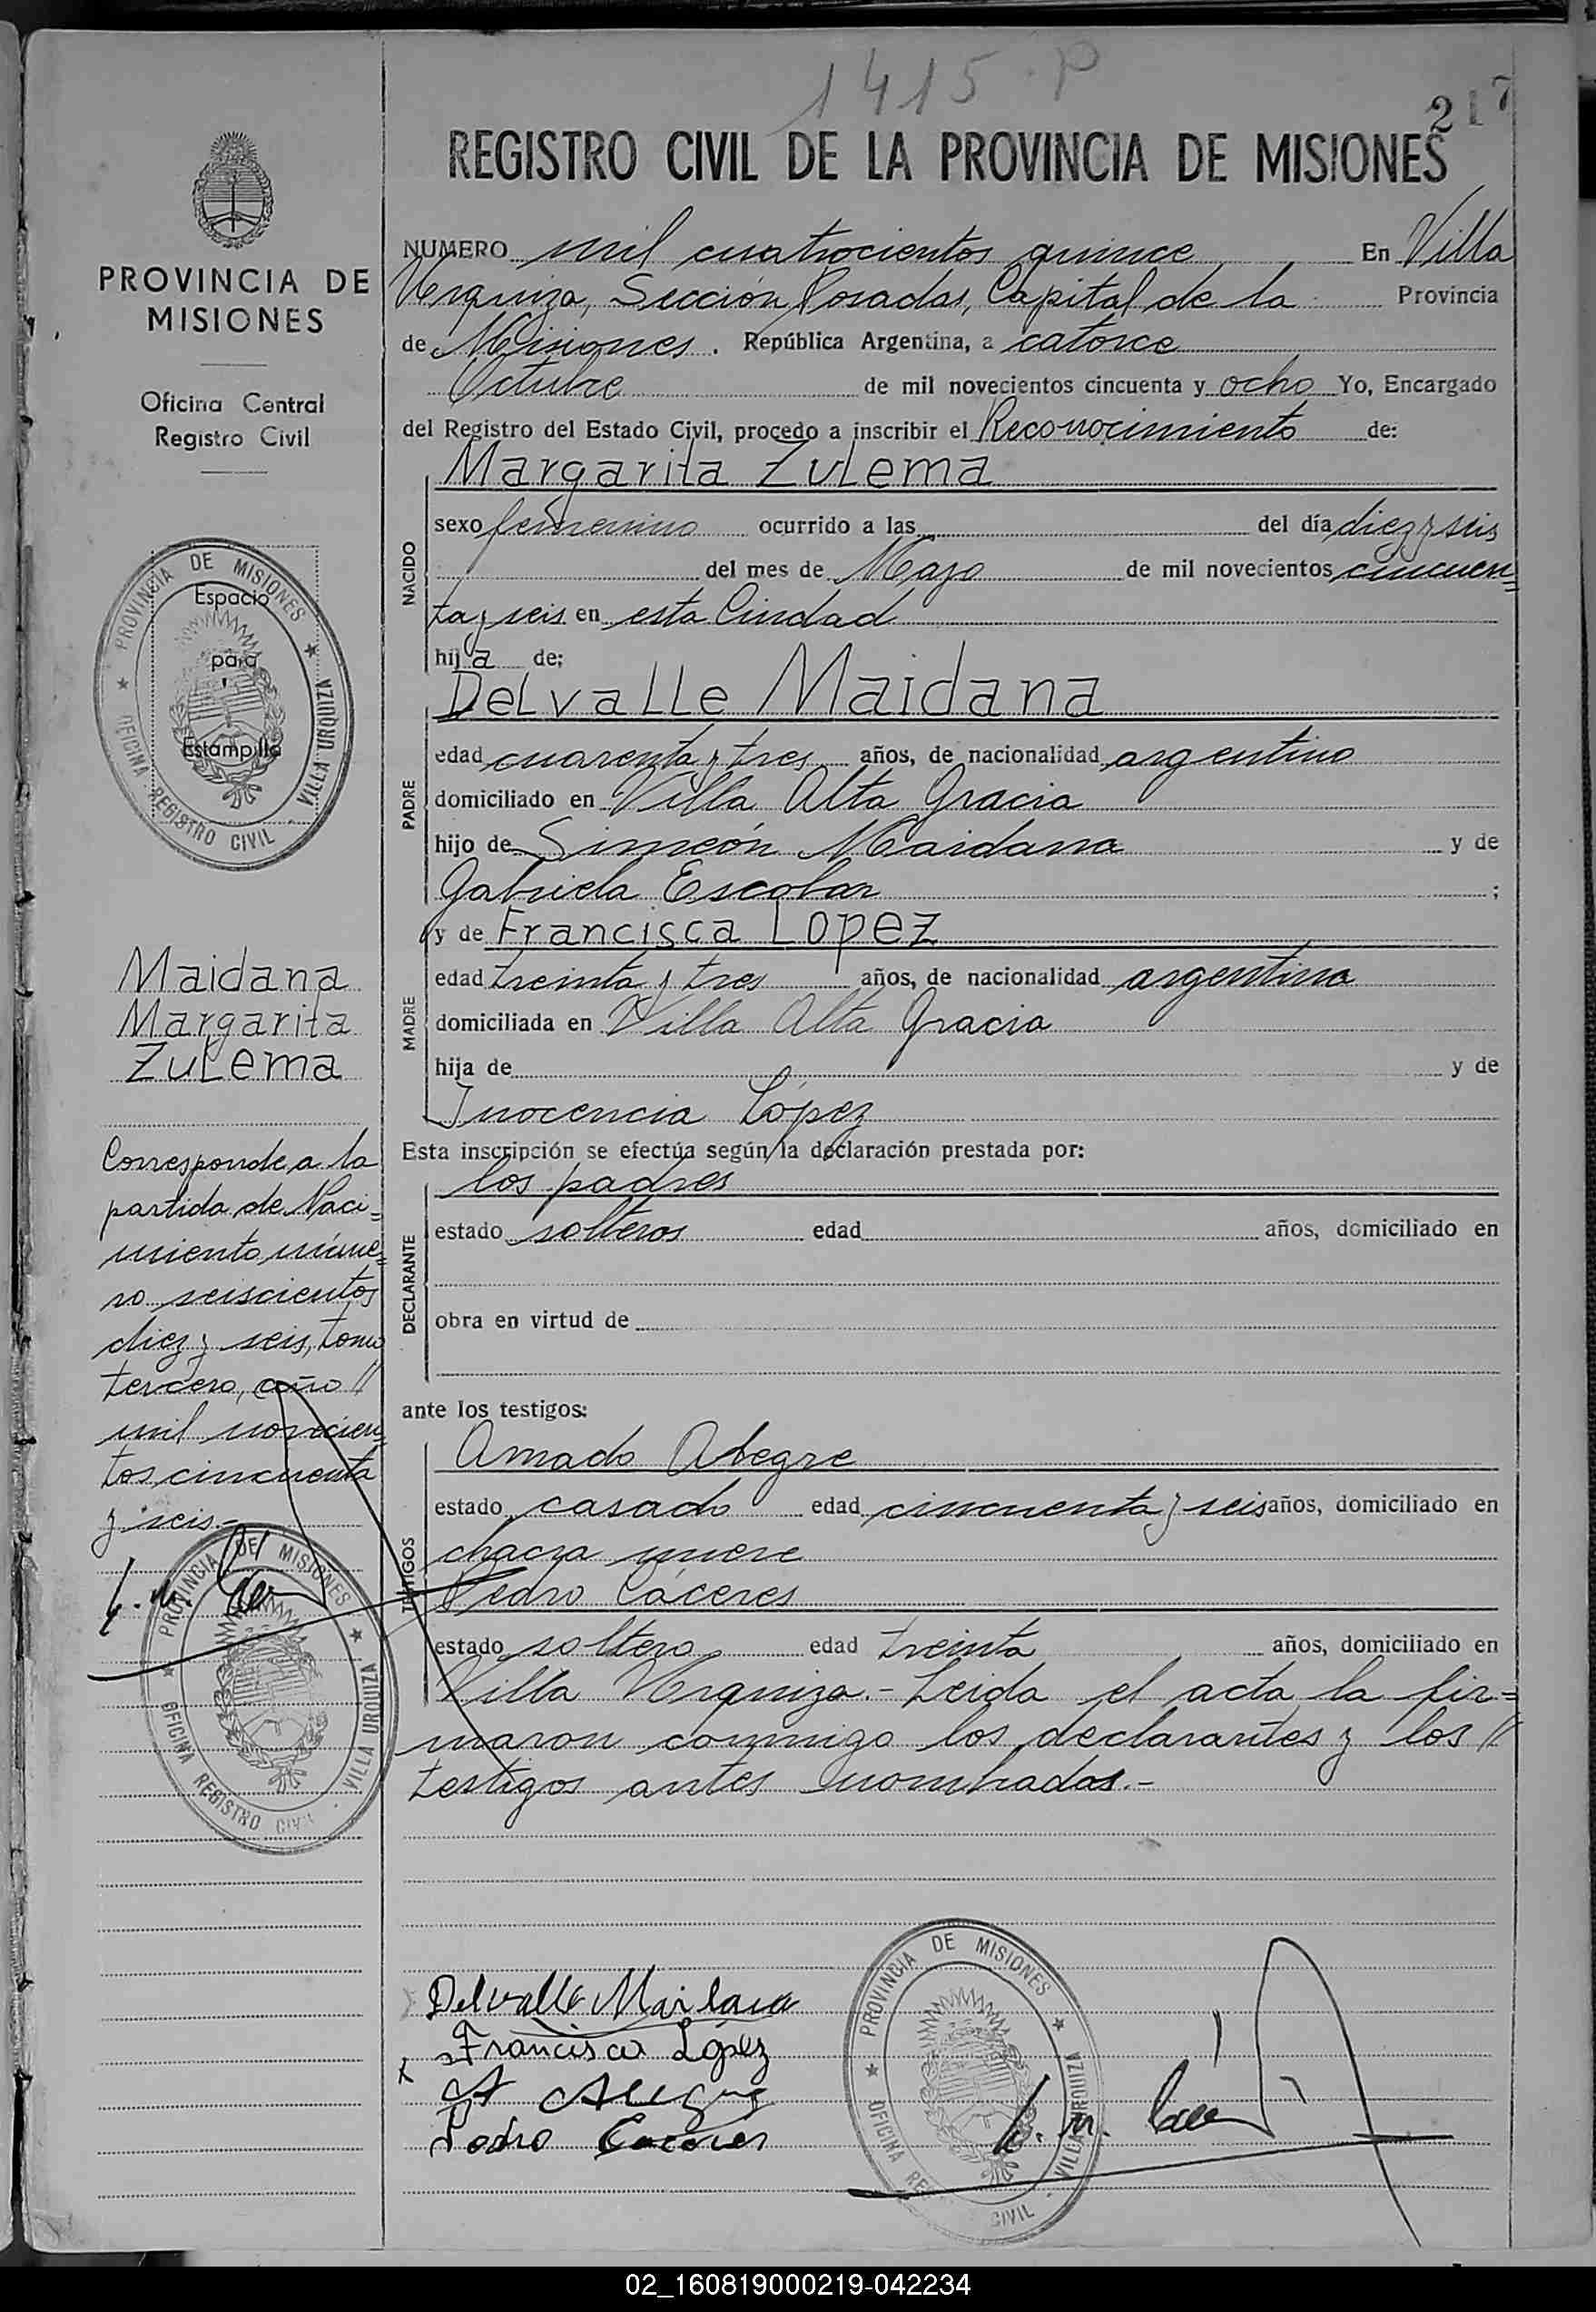 1415 · P
217
REGISTRO CIVIL DE LA PROVINCIA DE MISIONES
PROVINCIA DE
MISIONES
Oficina Central
Registro Civil
PROVINCIA DE MISIONES
OFICINA REGISTRO CIVIL - VILLA URQUIZA
Espacio
para
Estampilla
Maidana
Margarita
Zulema
Corresponde a la
partida de Naci=
miento núme=
ro seiscientos
diez y seis, tomo
tercero, año //
mil novecien=
tos cincuenta
y seis.-
PROVINCIA DE MISIONES
OFICINA REGISTRO CIVIL - VILLA URQUIZA
NUMERO mil cuatrocientos quince En Villa
Urquiza, Sección Posadas, Capital de la Provincia
de Misiones. República Argentina, a catorce
Octubre de mil novecientos cincuenta y ocho Yo, Encargado
del Registro del Estado Civil, procedo a inscribir el Reconocimiento de:
Margarita Zulema
NACIDO
sexo femenino ocurrido a las del día diez y seis
del mes de Mayo de mil novecientos cincuen=
ta y seis en esta Ciudad
hija de:
Delvalle Maidana
PADRE
edad cuarenta y tres años, de nacionalidad argentino
domiciliado en Villa Alta Gracia
hijo de Simeón Maidana y de
Gabriela Escobar ;
y de Francisca Lopez
MADRE
edad treinta y tres años, de nacionalidad argentina
domiciliada en Villa Alta Gracia
hija de y de
Inocencia López
Esta inscripción se efectúa según la declaración prestada por:
los padres
DECLARANTE
estado solteros edad años, domiciliado en
obra en virtud de
ante los testigos:
Amado Alegre
TESTIGOS
estado casado edad cincuenta y seis años, domiciliado en
chacra nueve
Pedro Cáceres
estado soltero edad treinta años, domiciliado en
Villa Urquiza.- Leida el acta la fir=
maron conmigo los declarantes y los //
testigos antes nombrados.-
Delvalle Maidana
Francisca López
A Alegre
Pedro Caceres
PROVINCIA DE MISIONES
OFICINA REGISTRO CIVIL - VILLA URQUIZA
02_160819000219-042234